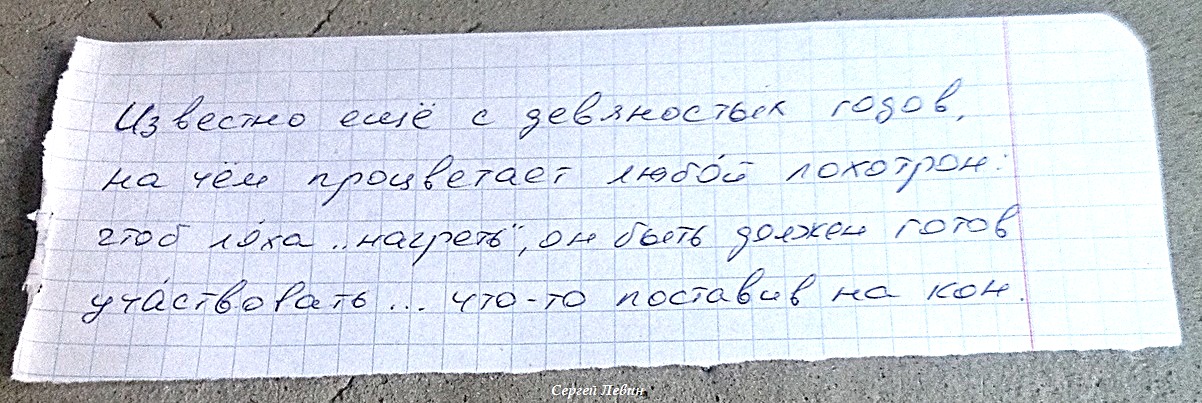 Известно ещё с девяностых годов,
на чём процветает любо́й лохотрон:
чтоб ло́ха „нагреть", он быть должен готов
уча́ствовать... что-то поставив на кон.
Сергей Левин